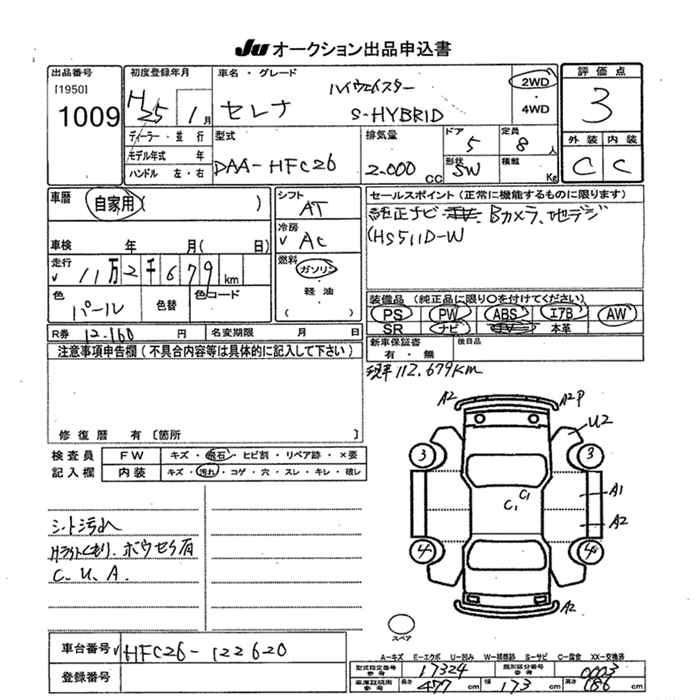 Ju オークション出品申込書
出品番号
[1950]
1009
初度登録年月
H25 1月
ディーラー・並 行
モデル年式 年
ハンドル 左・右
車名・グレード
ハイウェイスター
セレナ S-HYBRID
2WD
・
4WD
型式
DAA-HFC26
排気量
2.000 CC
ドア
5
定員
8 人
形状
SW
積載
Kg
評 価 点
3
外 装 内 装
C C
車歴
自家用( )
車検 年 月( 日)
走行
√ 11万2千679 km
色
パール
色替
色コード
シフト
AT
冷房
√ AC
燃料
ガソリン
・
軽 油
( )
セールスポイント (正常に機能するものに限ります)
純正ナビ Bカメラ、地デジ
(HS511D-W
装備品 (純正品に限り○を付けてください)
PS PW ABS エアB AW
SR ナビ TV 本革
R券 12.160 円
名変期限 月 日
新車保証書
有 ・ 無
後日品
注意事項申告欄 (不具合内容等は具体的に記入して下さい)
現車 112.679KM
修 復 歴 有 〔箇所 〕
検 査 員
記 入 欄
FW キズ ・ 飛石 ・ ヒビ割 ・ リペア跡 ・ ×要
内装 キズ ・ 汚れ ・ コゲ ・ 穴 ・ スレ ・ キレ ・ 破レ
シート汚れ
Hライトくもり、ボウセク有
C. U. A.
A2 A2 P
U2
3 3
C1 C1
A1
A2
4 4
A2
スペア
A-キズ E-エクボ U-凹み W-補修跡 S-サビ C-腐食 XX-交換済
車台番号 √ HFC26-122620
登録番号
型式指定番号
参考
17324
類別区分番号
参考
0003
車庫証明用
参考
長さ 477 cm 幅 173 cm 高さ 186 cm